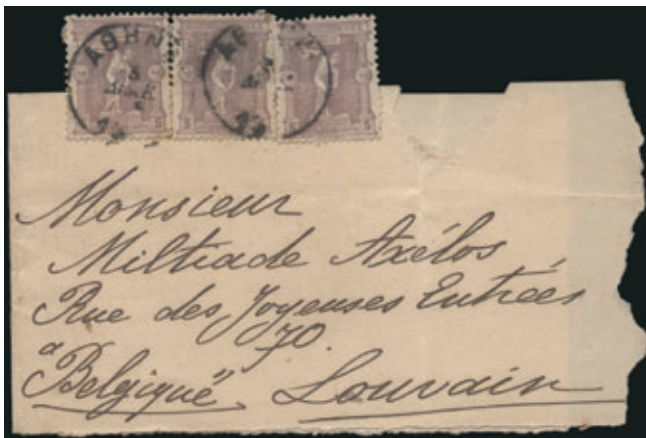 ΑΘΗΝ
5
5
5
Monsieur
Miltiade Axélos,
Rue des Joyeuses Entrées
70.
"Belgique" Louvain